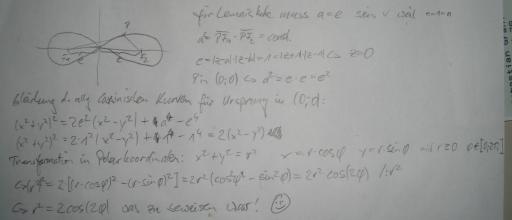 P
F₁ e e F₂
für Lemniskate muss a=e sein, weil
a² = PF₁ · PF₂ = const.
z=0
P in (0,0) ↪ a² = e·e = e²
Gleichung d. allg. Cassinischen Kurven für Ursprung in (0,0):
(x²+y²)² = 2e²(x²-y²) + a⁴ - e⁴
(x²+y²)² = 2·1²(x²-y²) + 1⁴ - 1⁴ = 2(x²-y²)
Transformation in Polarkoordinaten: x²+y²=r² x=r·cosφ y=r·sinφ mit r≥0
↪ r⁴ = 2[(r·cosφ)² - (r·sinφ)²] = 2r²(cos²φ - sin²φ) = 2r² cos(2φ) /:r²
↪ r² = 2cos(2φ) was zu beweisen war! ☺